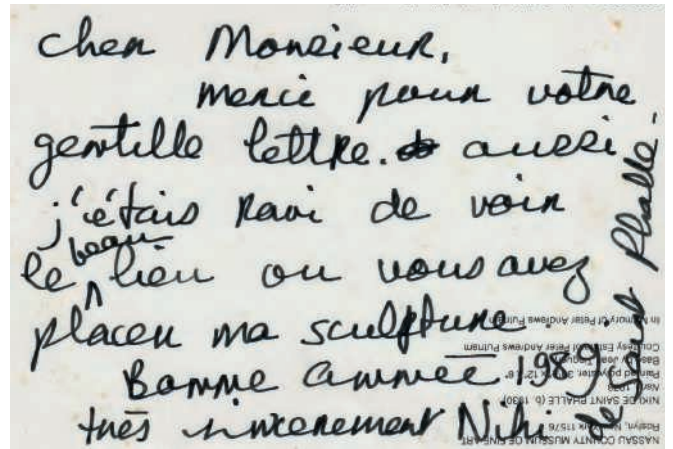 cher Monsieur,
merci pour votre
gentille lettre. aussi
j'étais ravi de voir
le beau lieu ou vous avez
placer ma sculpture.
Bonne année 1989.
très sincerement Niki
de Saint Phalle.
NASSAU COUNTY MUSEUM OF FINE ART
Roslyn, New York 11576
NIKI DE SAINT PHALLE (b. 1930)
Painted polyester,
Base by Jean Tinguely
Courtesy Estate of Peter Andrews Putnam
In Memory of Peter Andrews Putnam